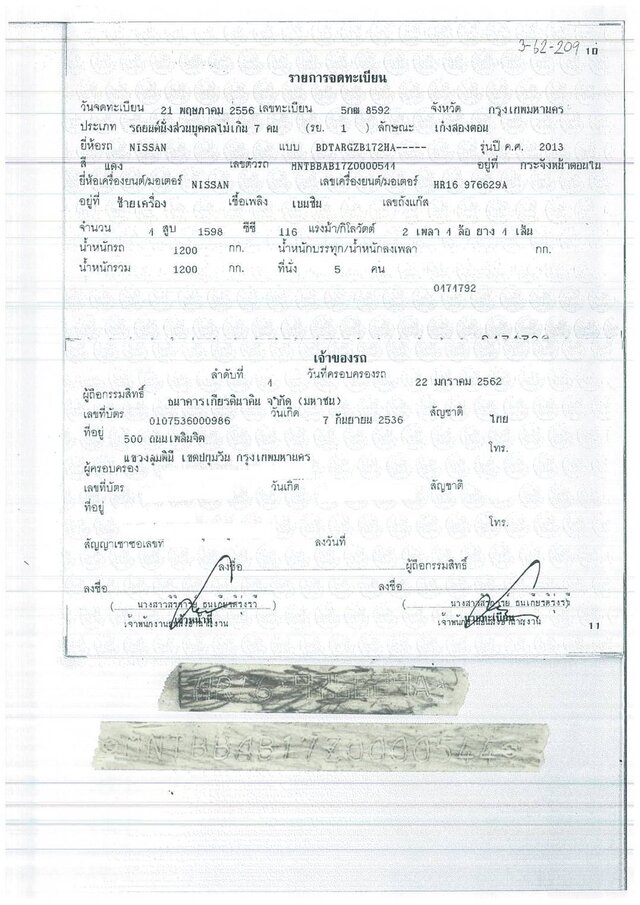 3-62-209 10
รายการจดทะเบียน
วันจดทะเบียน 21 พฤษภาคม 2556 เลขทะเบียน 5กฒ 8592 จังหวัด กรุงเทพมหานคร
ประเภท รถยนต์นั่งส่วนบุคคลไม่เกิน 7 คน (รย. 1 ) ลักษณะ เก๋งสองตอน
ยี่ห้อรถ NISSAN แบบ BDTARGZB172HA----- รุ่นปี ค.ศ. 2013
สี แดง เลขตัวรถ MNTBBAB17Z0000544 อยู่ที่ กระจังหน้าตอนใน
ยี่ห้อเครื่องยนต์/มอเตอร์ NISSAN เลขเครื่องยนต์/มอเตอร์ HR16 976629A
อยู่ที่ ซ้ายเครื่อง เชื้อเพลิง เบนซิน เลขถังแก๊ส
จำนวน 4 สูบ 1598 ซีซี 116 แรงม้า/กิโลวัตต์ 2 เพลา 4 ล้อ ยาง 4 เส้น
น้ำหนักรถ 1200 กก. น้ำหนักบรรทุก/น้ำหนักลงเพลา กก.
น้ำหนักรวม 1200 กก. ที่นั่ง 5 คน
0174792
เจ้าของรถ
ลำดับที่ 4 วันที่ครอบครองรถ 22 มกราคม 2562
ผู้ถือกรรมสิทธิ์ ธนาคารเกียรตินาคิน จำกัด (มหาชน)
เลขที่บัตร 0107536000986 วันเกิด 7 กันยายน 2536 สัญชาติ ไทย
ที่อยู่ 500 ถนนเพลินจิต โทร.
แขวงลุมพินี เขตปทุมวัน กรุงเทพมหานคร
ผู้ครอบครอง
เลขที่บัตร วันเกิด สัญชาติ
ที่อยู่
โทร.
สัญญาเช่าซื้อเลขที่ ลงวันที่
ลงชื่อ ผู้ถือกรรมสิทธิ์
ลงชื่อ ลงชื่อ
11
MNTBBAB17Z0000544